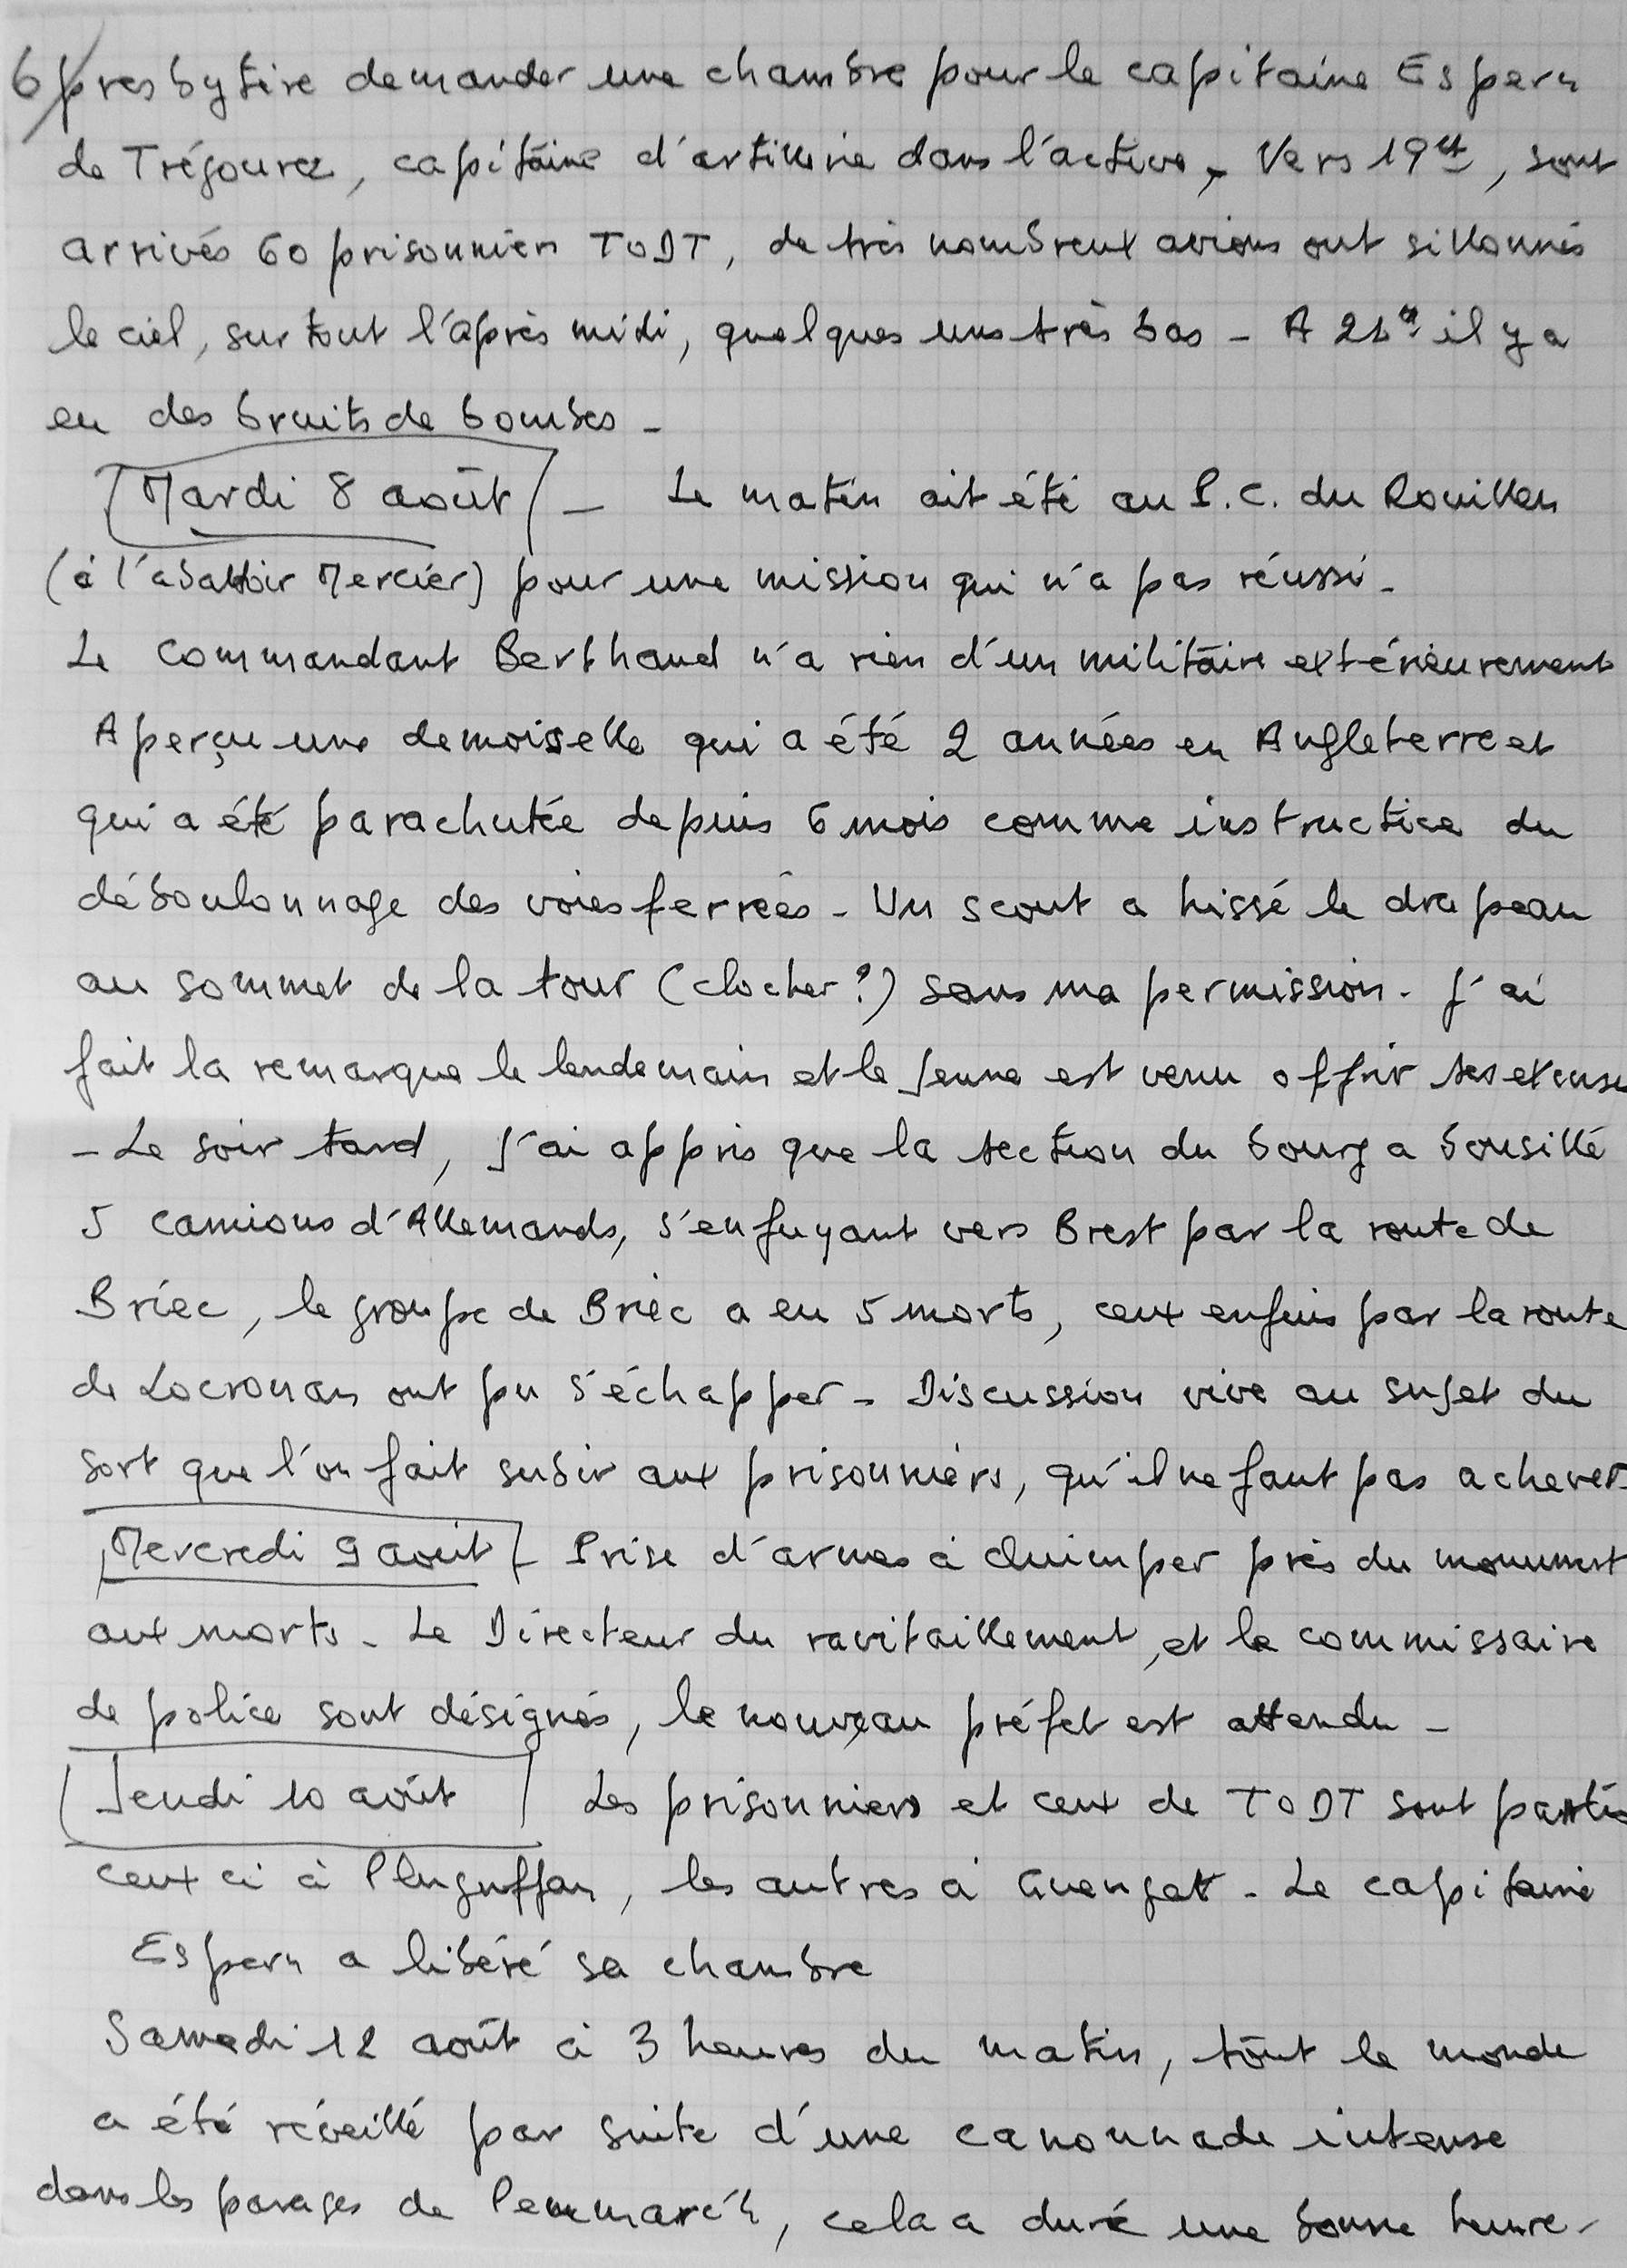 6/ presbytère demander une chambre pour le capitaine Espern
de Trégourez, capitaine d'artillerie dans l'active, - Vers 19H, sont
arrivés 60 prisonniers TODT, de très nombreux avions ont sillonnés
le ciel, surtout l'après midi, quelques uns très bas - A 21H il y a
eu des bruits de bombes -
Mardi 8 août - Le matin ait été au P.C. du Rouillen
(à l'abattoir Mercier) pour une mission qui n'a pas réussi -
Le Commandant Berthaud n'a rien d'un militaire extérieurement
Aperçu une demoiselle qui a été 2 années en Angleterre et
qui a été parachutée depuis 6 mois comme instructice du
déboulonnage des voies ferrées - Un scout a hissé le drapeau
au sommet de la tour (clocher ?) sans ma permission - J'ai
fait la remarque le lendemain et le jeune est venu offrir ses excuses
- Le soir tard, j'ai appris que la section du bourg a bousillé
5 camions d'Allemands, s'enfuyant vers Brest par la route de
Briec, le groupe de Briec a eu 5 morts, ceux enfuis par la route
de Locronan ont pu s'échapper - Discussion vive au sujet du
sort que l'on fait subir aux prisonniers, qu'il ne faut pas achever
Mercredi 9 août - Prise d'armes à Quimper près du monument
aux morts - Le Directeur du ravitaillement, et le commissaire
de police sont désignés, le nouveau préfet est attendu -
Jeudi 10 août Les prisonniers et ceux de TODT sont partis
ceux ci à Pluguffan, les autres à Guengat - Le capitaine
Espern a libéré sa chambre
Samedi 12 août à 3 heures du matin, tout le monde
a été réveillé par suite d'une canonnade intense
dans les parages de Penmarc'h, cela a duré une bonne heure -